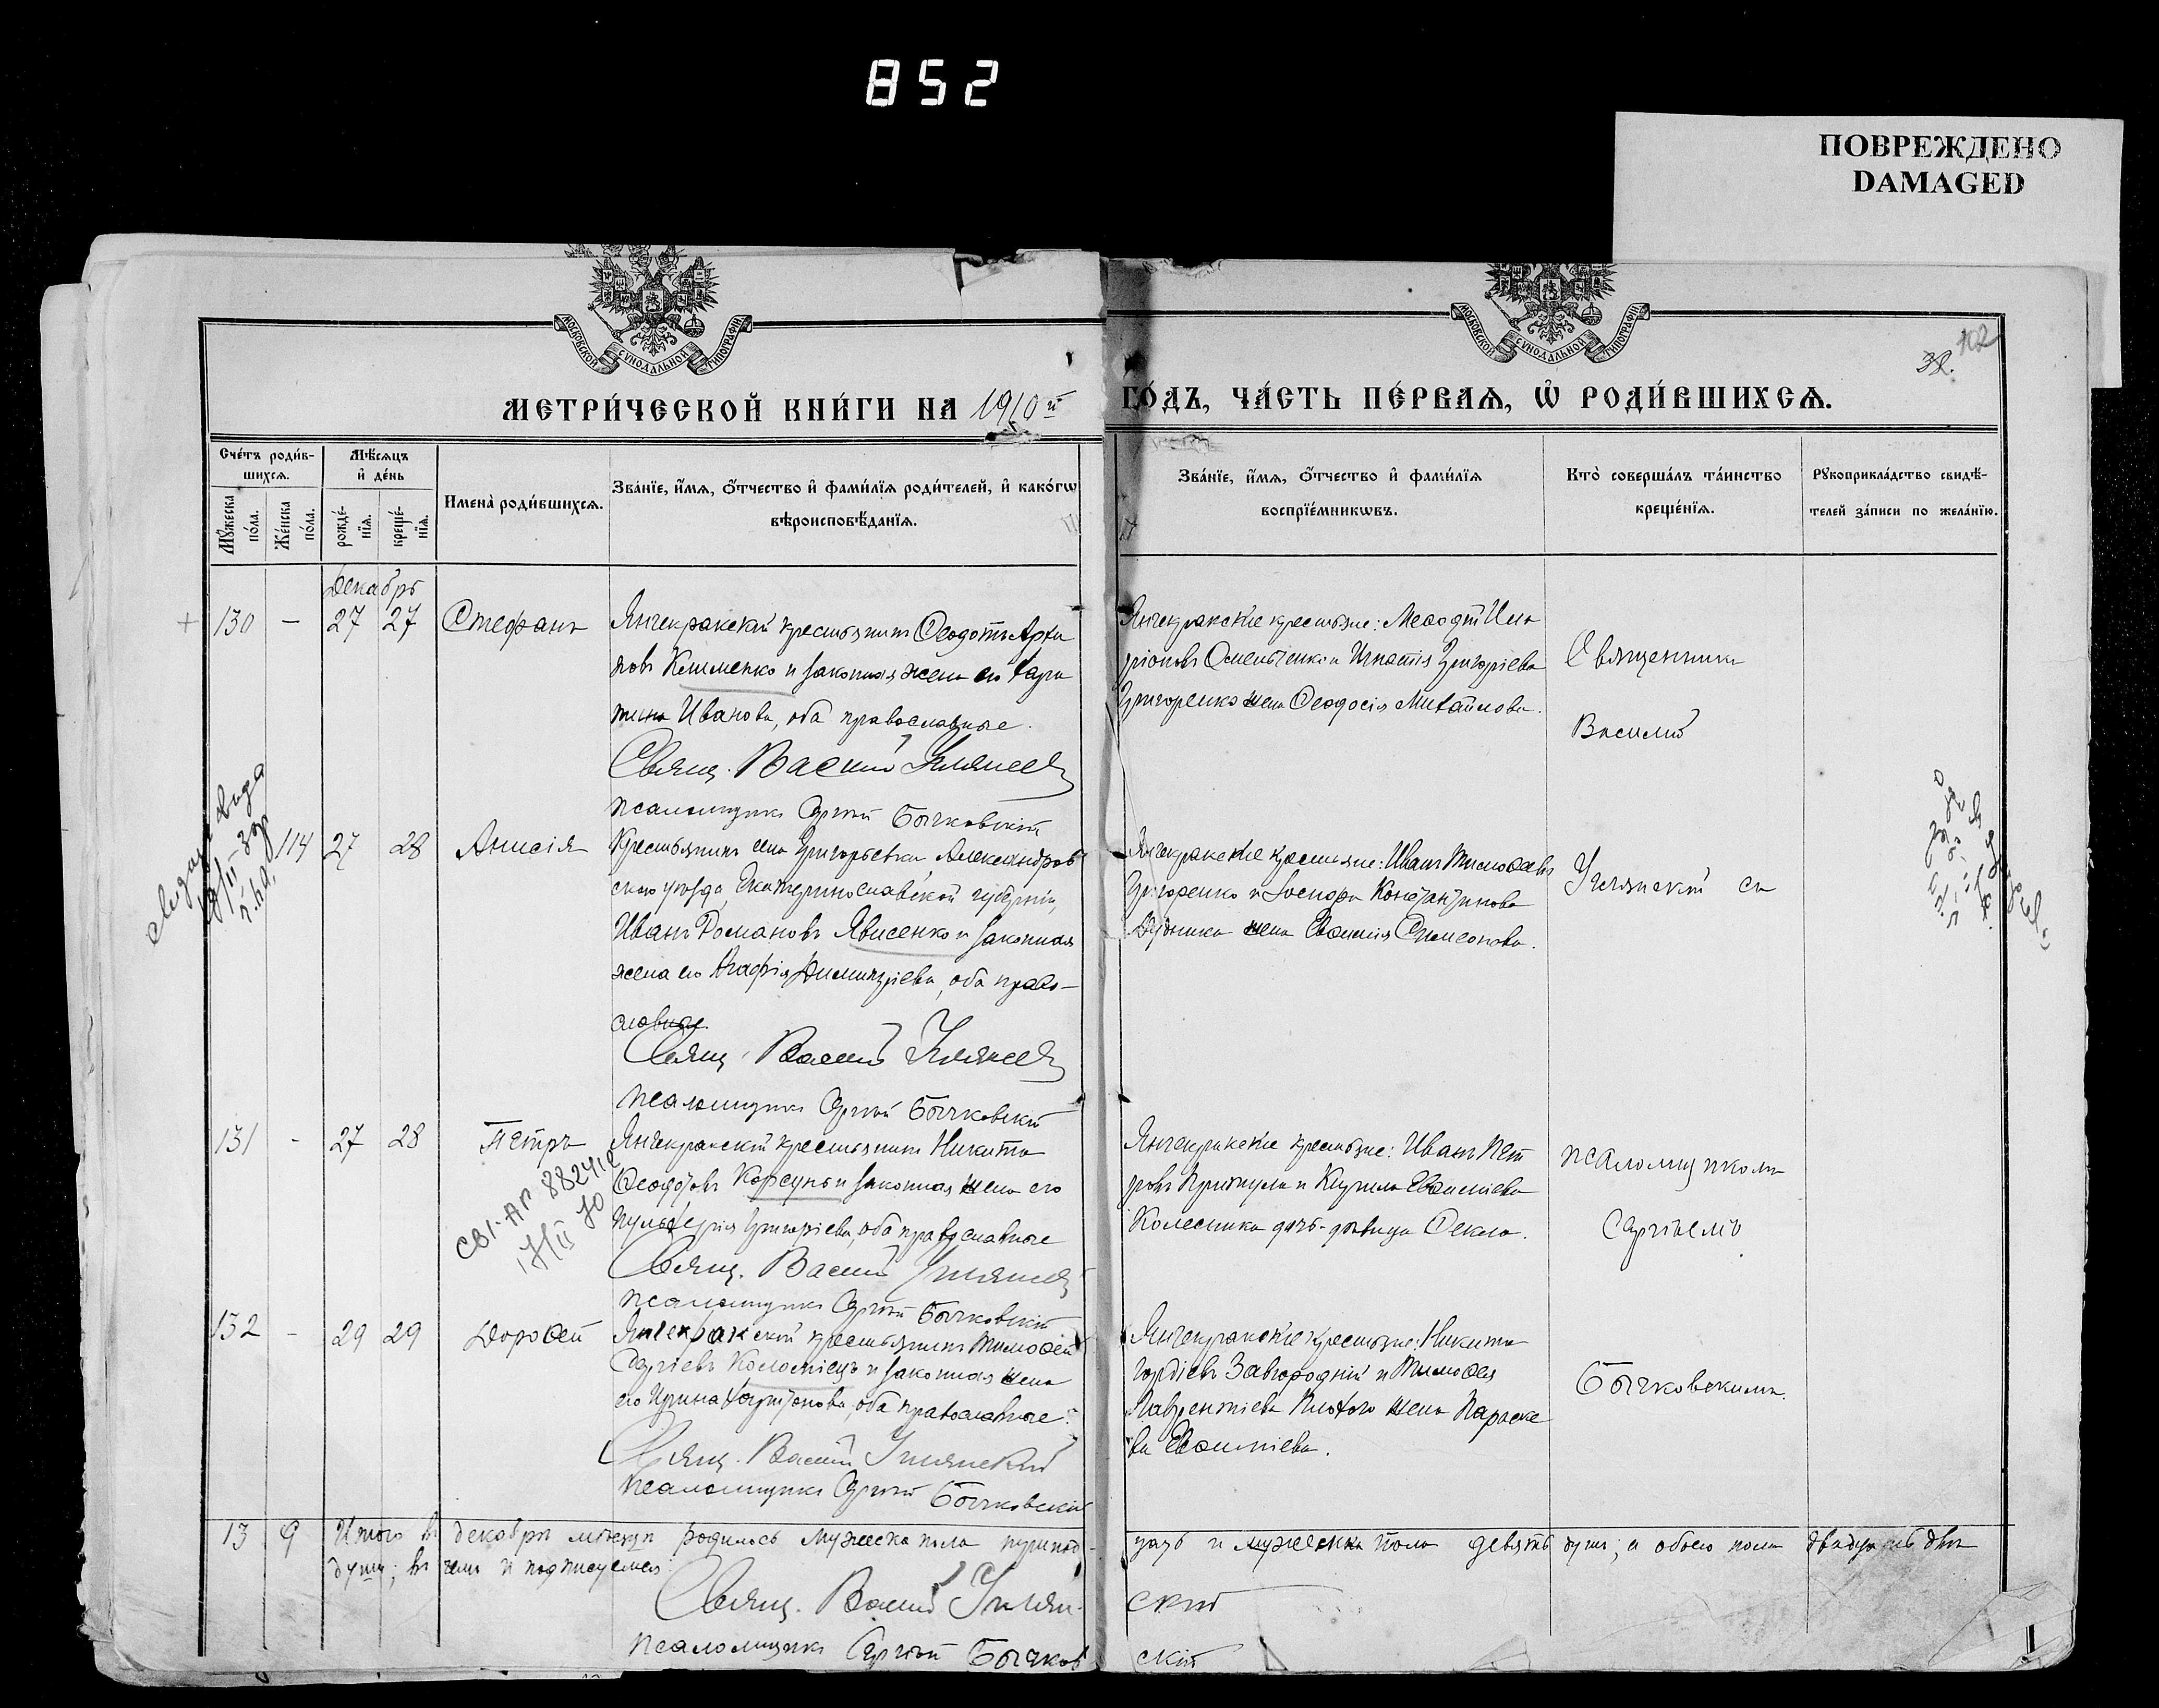 852
ПОВРЕЖДЕНО
DAMAGED
МОСКОВСКОЙ СѴНОДАЛЬНОЙ ТИПОГРАФІИ
МОСКОВСКОЙ СѴНОДАЛЬНОЙ ТИПОГРАФІИ
32. 102
МЕТРИ́ЧЕСКОЙ КНИ́ГИ НА 1910й ГО́ДЪ, ЧА́СТЬ ПЕ́РВАѦ, Ѡ҆ РОДИ́ВШИХСѦ.
Сче́тъ роди́в-
шихсѧ.
Мꙋ́жеска по́ла.
Же́нска по́ла.
Мѣ́сѧцъ
и҆ де́нь
рожде́-
нїѧ.
креще́-
нїѧ.
Имена̀ роди́вшихсѧ.
Зва́нїе, и҆́мѧ, ѻ҆́тчество и҆ фами́лїѧ роди́телей, и҆ како́гѡ
вѣроисповѣ́данїѧ.
Зва́нїе, и҆́мѧ, ѻ҆́тчество и҆ фами́лїѧ
воспрїе́мникѡвъ.
Кто̀ соверша́лъ та́инство
креще́нїѧ.
Рꙋкоприкла́дство свидѣ́-
телей за́писи по жела́нїю.
Декабрь
130 - 27 27 Стефанъ
Янчекракскій крестьянинъ Ѳеодотъ Архи
повъ Клименко и законная жена его Хари
тина Иванова, оба православные.
Свящ. Василій
Псаломщикъ Сергій Бычковскій
Янчекракскіе крестьяне: Меѳодій Ила
ріоновъ Омельченко и Игнатія Григоріева
Григоренко жена Ѳеодосія Михайлова.
Священникъ
Василій
114 27 28 Анисія
Крестьянинъ села Григорьевки Александров
скаго уѣзда, Екатеринославской губерніи,
Иванъ Романовъ Явисенко и законная
жена его Агафія Димитріева, оба право-
славные.
Свящ. Василій
Псаломщикъ Сергій Бычковскій
Янчекракскіе крестьяне: Иванъ Тимоѳеевъ
Григоренко и Іосифа Константинова
Дудника жена Евѳимія Симеонова.
съ
131 - 27 28 Петръ
Янчекракскій крестьянинъ Никита
Ѳеодотовъ Корсунь и законная жена его
Пульхерія Григоріева, оба православные
Свящ. Василій
Псаломщикъ Сергій Бычковскій
Янчекракскіе крестьяне: Иванъ Пет
ровъ Притула и Кирила Евѳиміева
Колесника дочь-дѣвица Ѳекла.
псаломщикомъ
Сергіемъ
132 - 29 29 Дороѳей
Янчекракскій крестьянинъ Тимоѳей
Сергіевъ Коломіецъ и законная жена
его Ирина Харитонова, оба православные.
Свящ. Василій
Псаломщикъ Сергій Бычковскій
Янчекракскіе крестьяне: Никита
Гордіевъ Завгородній и Тимоѳея
Лаврентіева Плохого жена Параске
ва Евѳиміева.
Бычковскимъ.
13 9 Итого въ декабрѣ мѣсяцѣ родилось мужеска пола тринад-
цать и женска пола девять душъ; а обоего пола двадцать двѣ
души; въ чемъ и подписуемся:
Свящ. Василій
скій
Псаломщикъ Сергій Бычков
скій